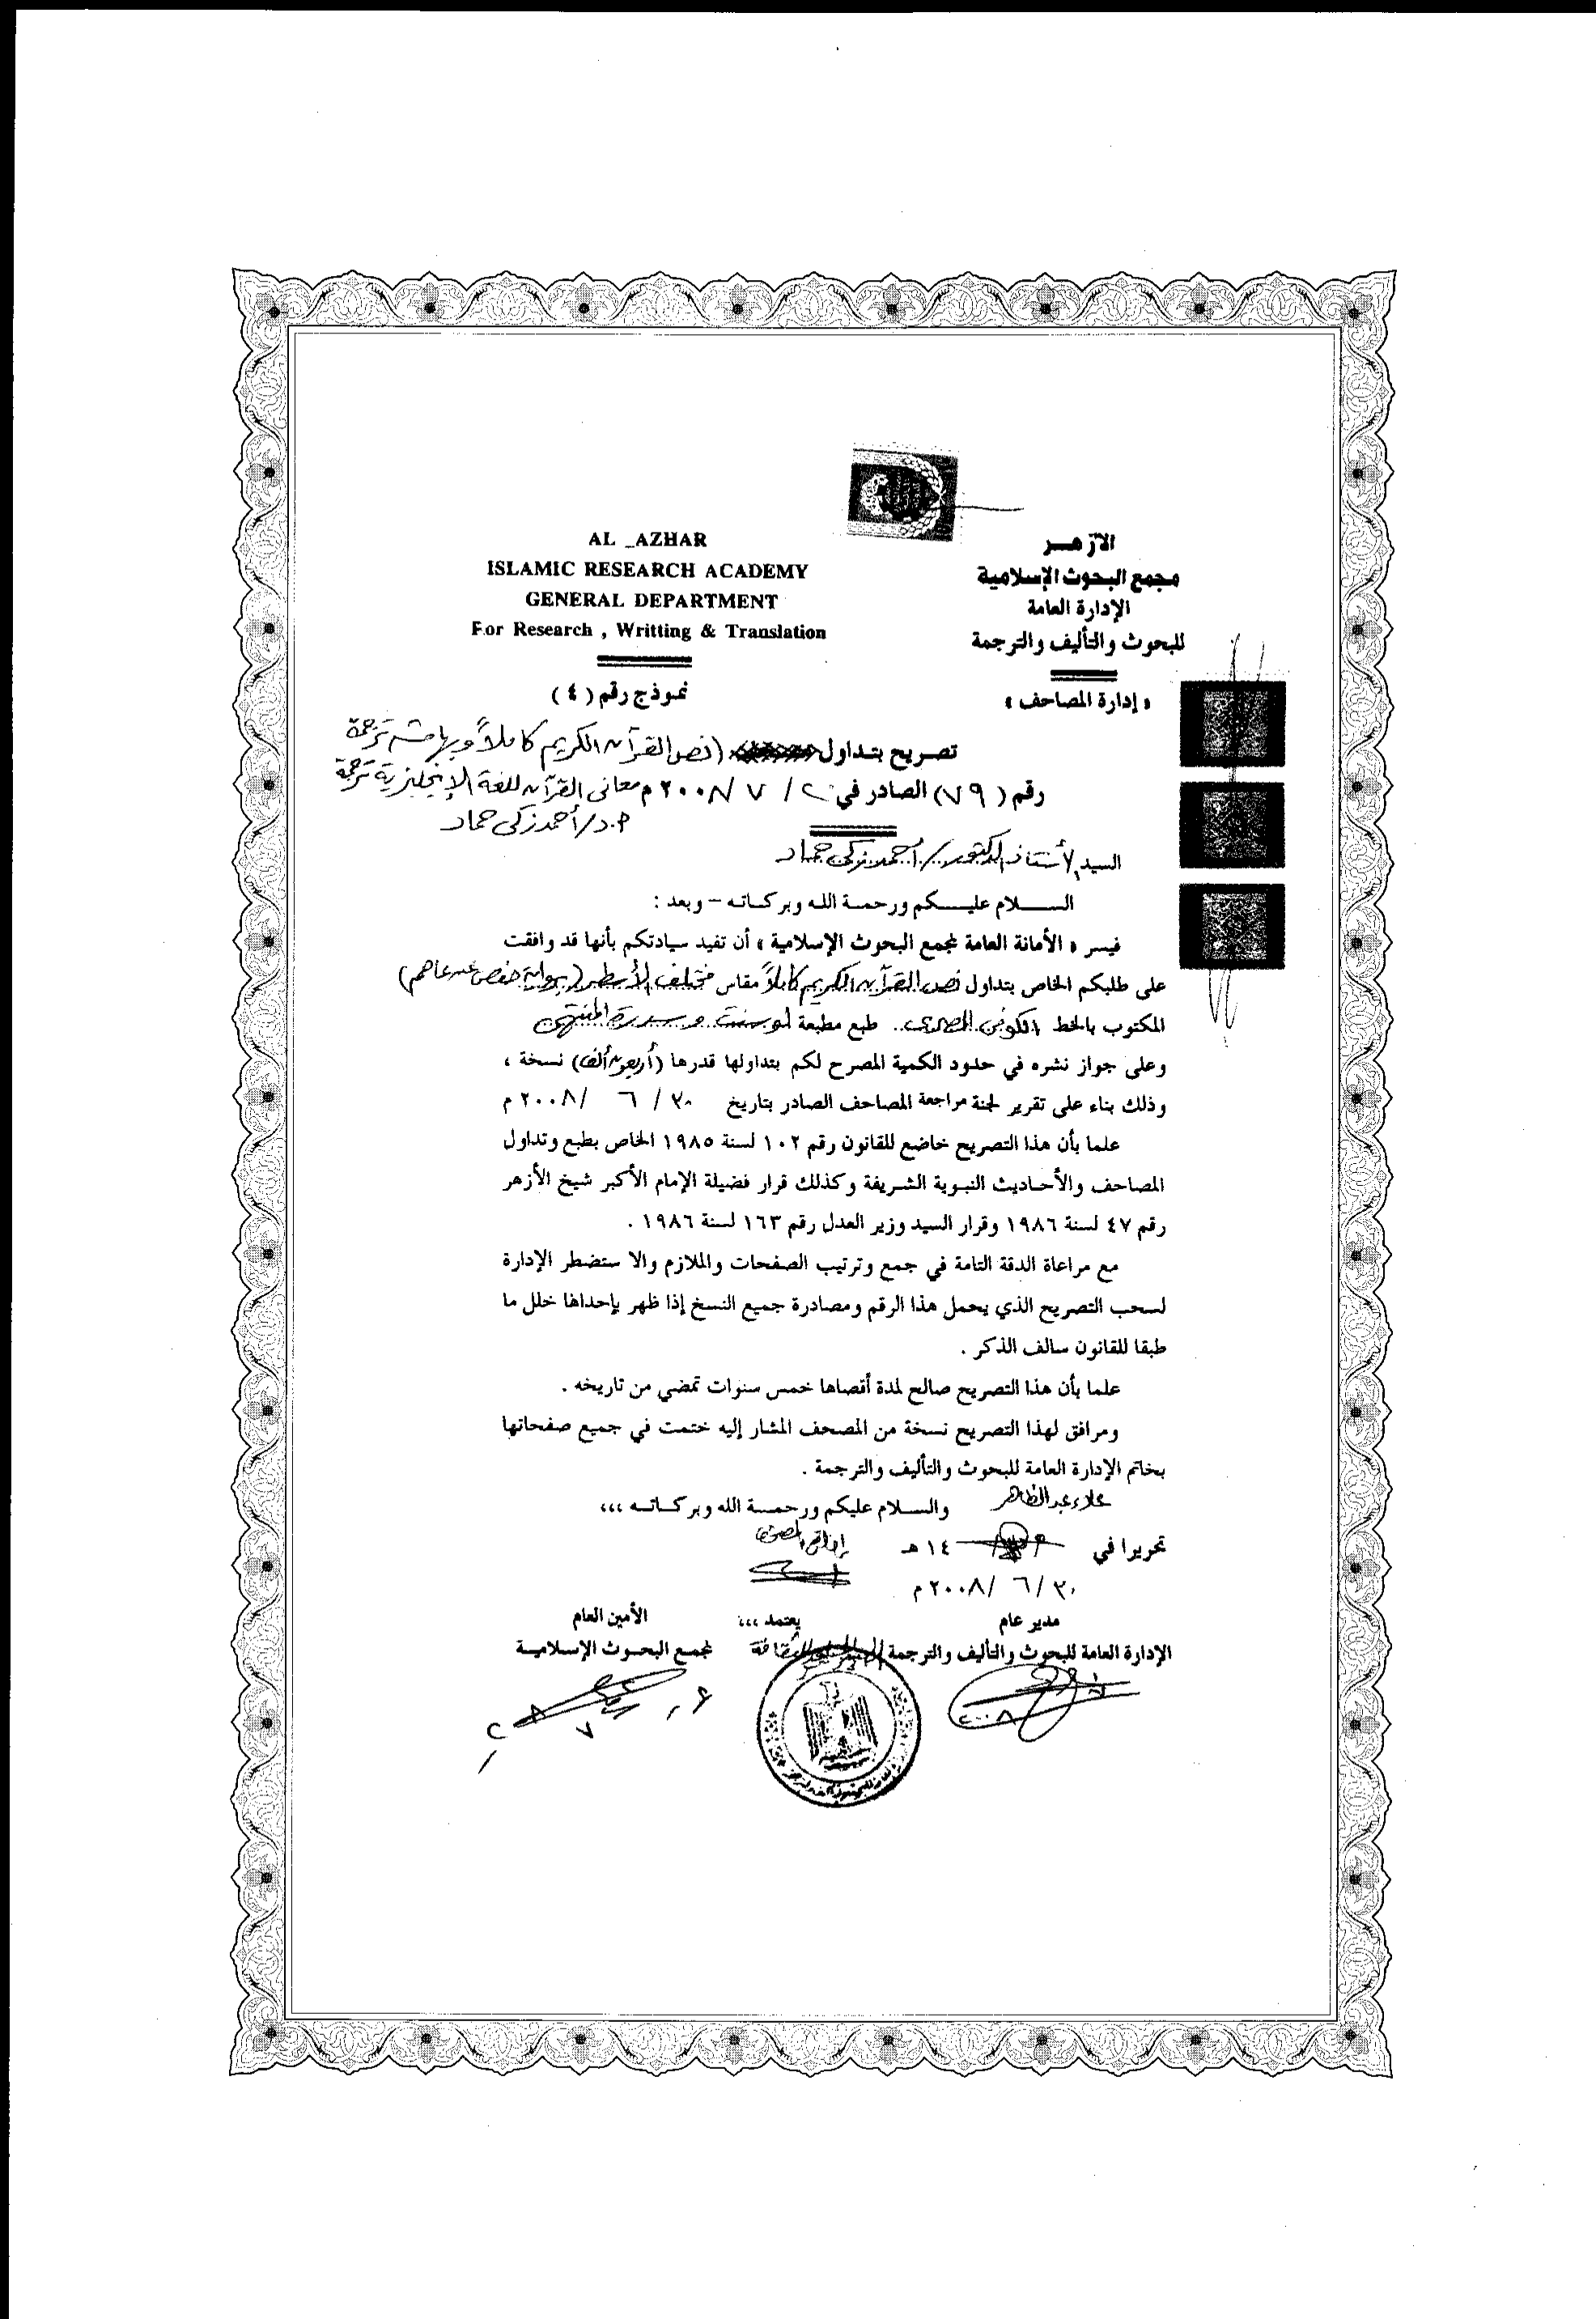 AL _AZHAR
ISLAMIC RESEARCH ACADEMY
GENERAL DEPARTMENT
For Research , Writting & Translation
الأزهــر
مجمع البحوث الإسلامية
الإدارة العامة
للبحوث والتأليف والترجمة
« إدارة المصاحف »
نموذج رقم ( ٤ )
تصريح بتداول (نص القرآن الكريم كاملاً وبهامشه ترجمة
رقم ( ٧٩ ) الصادر في ٢ / ٧ / ٢٠٠٨ م معانى القرآن للغة الإنجليزية ترجمة
أ.د/ أحمد زكى حماد
السيد الأستاذ الدكتور / أحمد زكى حماد
الســـلام عليـــكم ورحمـة اللـه وبركـاتـه – وبعد :
فيسر « الأمانة العامة لمجمع البحوث الإسلامية » أن تفيد سيادتكم بأنها قد وافقت
على طلبكم الخاص بتداول نص القرآن الكريم كاملاً مقاس مختلف الأسطر (برواية حفص عن عاصم)
المكتوب بالخط الكوفى المصرى طبع مطبعة لوسنت وسدرة المنتهى
وعلى جواز نشره في حدود الكمية المصرح لكم بتداولها قدرها (أربعون ألف) نسخة ،
وذلك بناء على تقرير لجنة مراجعة المصاحف الصادر بتاريخ ٣٠ / ٦ / ٢٠٠٨ م
علما بأن هذا التصريح خاضع للقانون رقم ١٠٢ لسنة ١٩٨٥ الخاص بطبع وتداول
المصاحف والأحاديث النبوية الشريفة وكذلك قرار فضيلة الإمام الأكبر شيخ الأزهر
رقم ٤٧ لسنة ١٩٨٦ وقرار السيد وزير العدل رقم ١٦٣ لسنة ١٩٨٦ .
مع مراعاة الدقة التامة في جمع وترتيب الصفحات والملازم والا ستضطر الإدارة
لسحب التصريح الذي يحمل هذا الرقم ومصادرة جميع النسخ إذا ظهر بإحداها خلل ما
طبقا للقانون سالف الذكر .
علما بأن هذا التصريح صالح لمدة أقصاها خمس سنوات تمضي من تاريخه .
ومرافق لهذا التصريح نسخة من المصحف المشار إليه ختمت في جميع صفحاتها
بخاتم الإدارة العامة للبحوث والتأليف والترجمة .
علاء عبد الظاهر
والســلام عليكم ورحمـــة الله وبركــاتــه ،،،
تحريرا في ١٤ هـ
٣٠ / ٦ / ٢٠٠٨ م
مدير عام
يعتمد ،،،
الأمين العام
الإدارة العامة للبحوث والتأليف والترجمة
لمجمع البحوث الإسلاميـة